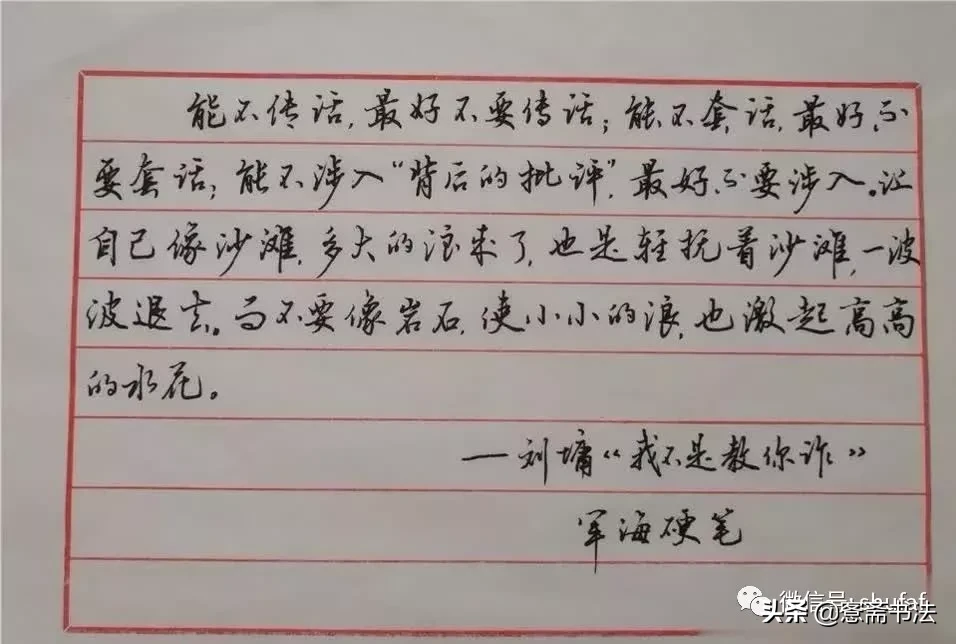 能不传话，最好不要传话；能不套话，最好不
要套话；能不涉入“背后的批评”，最好不要涉入。让
自己像沙滩，多大的浪来了，也是轻抚着沙滩，一波
波退去。而不要像岩石，使小小的浪，也激起高高
的水花。
—刘墉《我不是教你诈》
军海硬笔
微信号: shufaf
头条 @窓斋书法